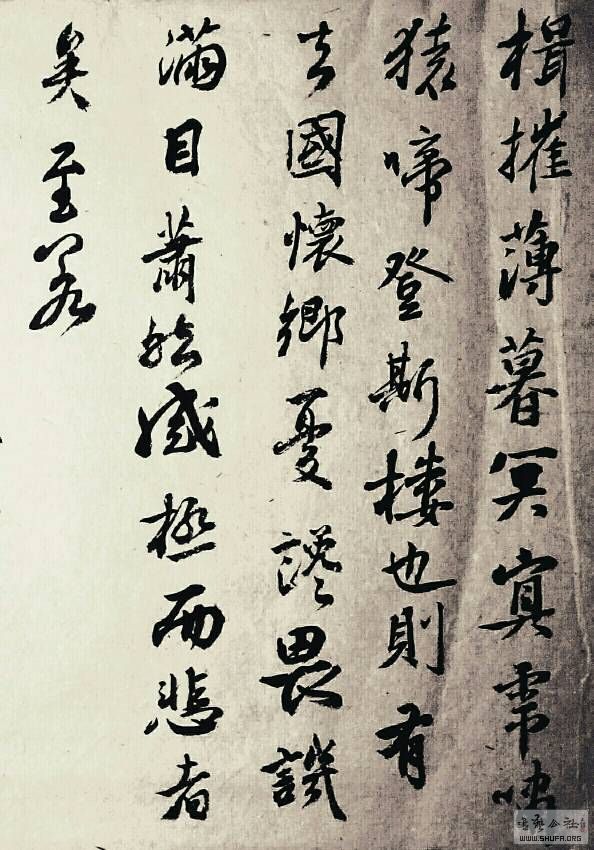 楫摧薄暮冥冥虎嘯
猿啼登斯樓也則有
去國懷鄉憂讒畏譏
滿目蕭然感極而悲者
矣至若
書藝公社
WWW.SHUFA.ORG